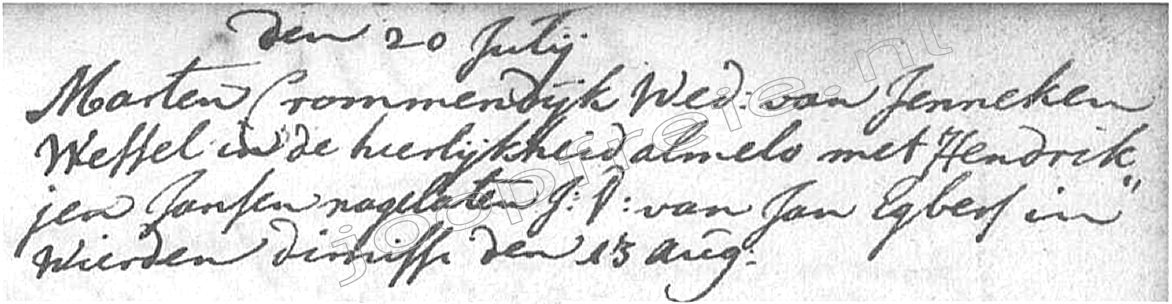 den 20 Julij
Marten Crommendijk Wed: van Jenneken
Wessel in de heerlijkheid almelo met Hendrik„
jen Jansen nagelaten J: D: van Jan Egbers in
Wierden dimissi den 13 aug.
joopfreie.nl